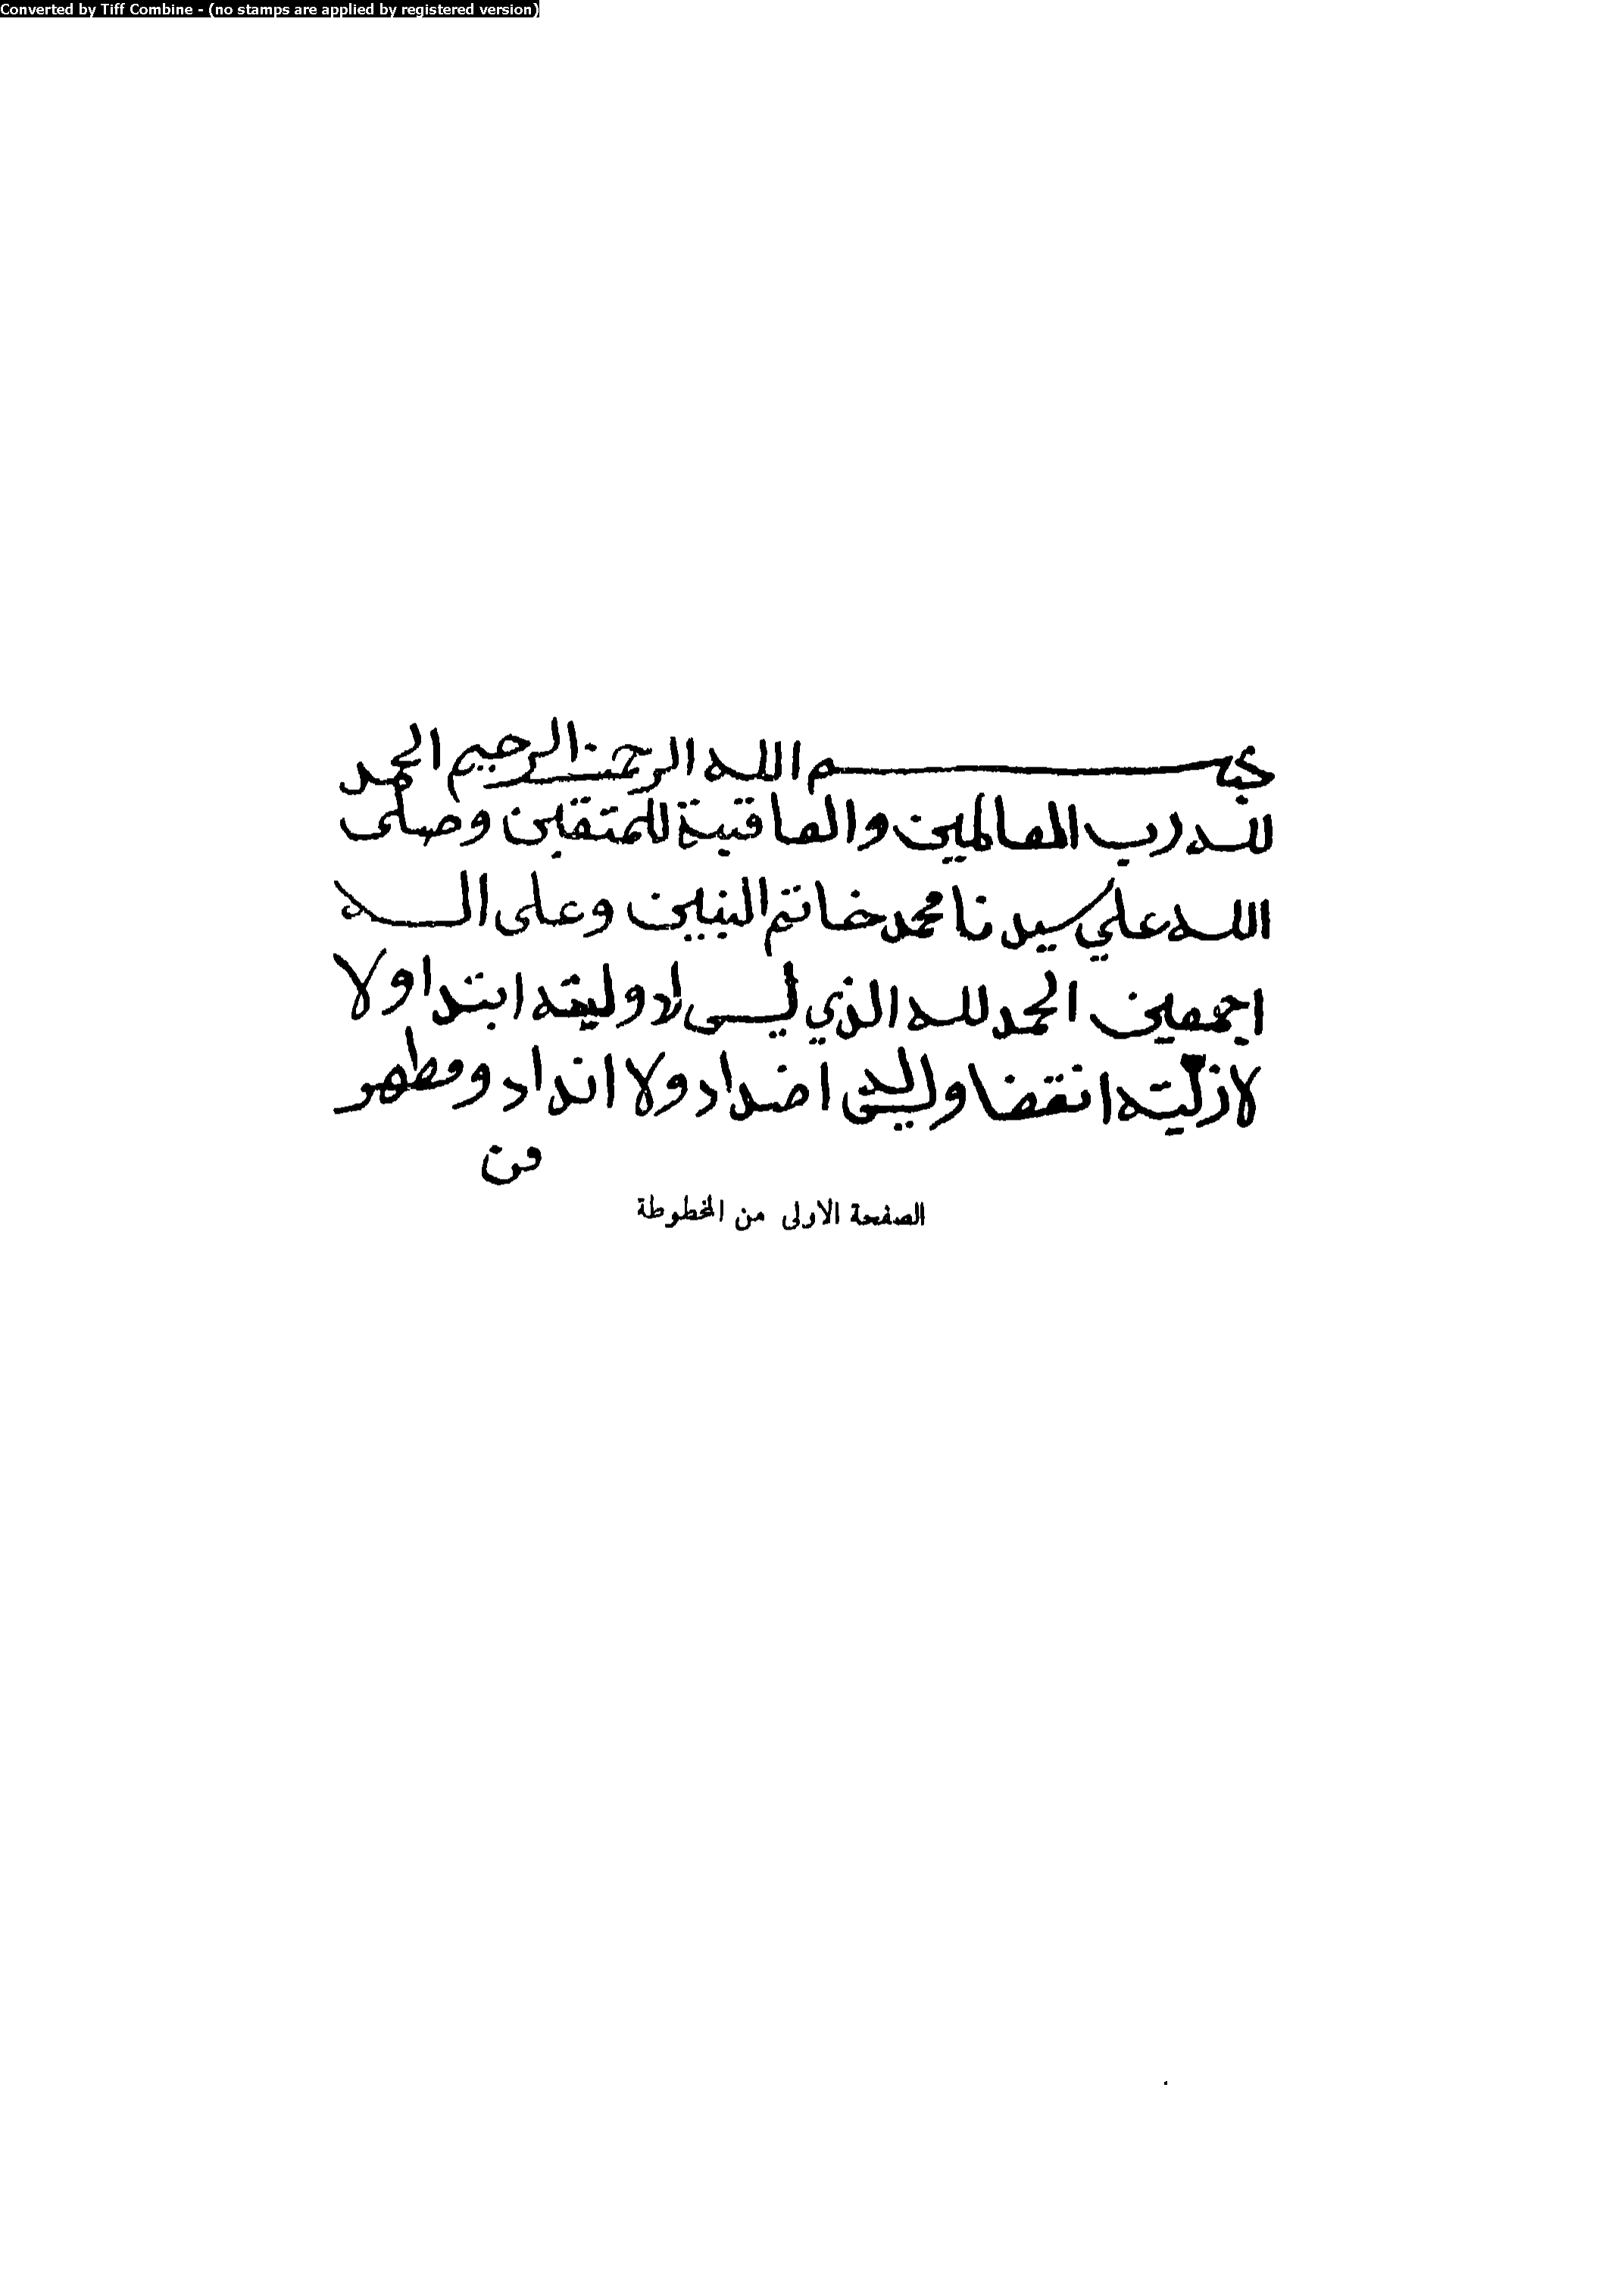 Converted by Tiff Combine - (no stamps are applied by registered version)
بسم الله الرحمن الرحيم الحمد
لله رب العالمين والعاقبة للمتقين وصلى
الله علي سيدنا محمد خاتم النبيين وعلى اله
اجمعين الحمد لله الذي ليس لاوليته ابتدا ولا
لازليته انقضا وليس اضداد ولا انداد ومطهر
من
الصفحة الاولى من المخطوطة